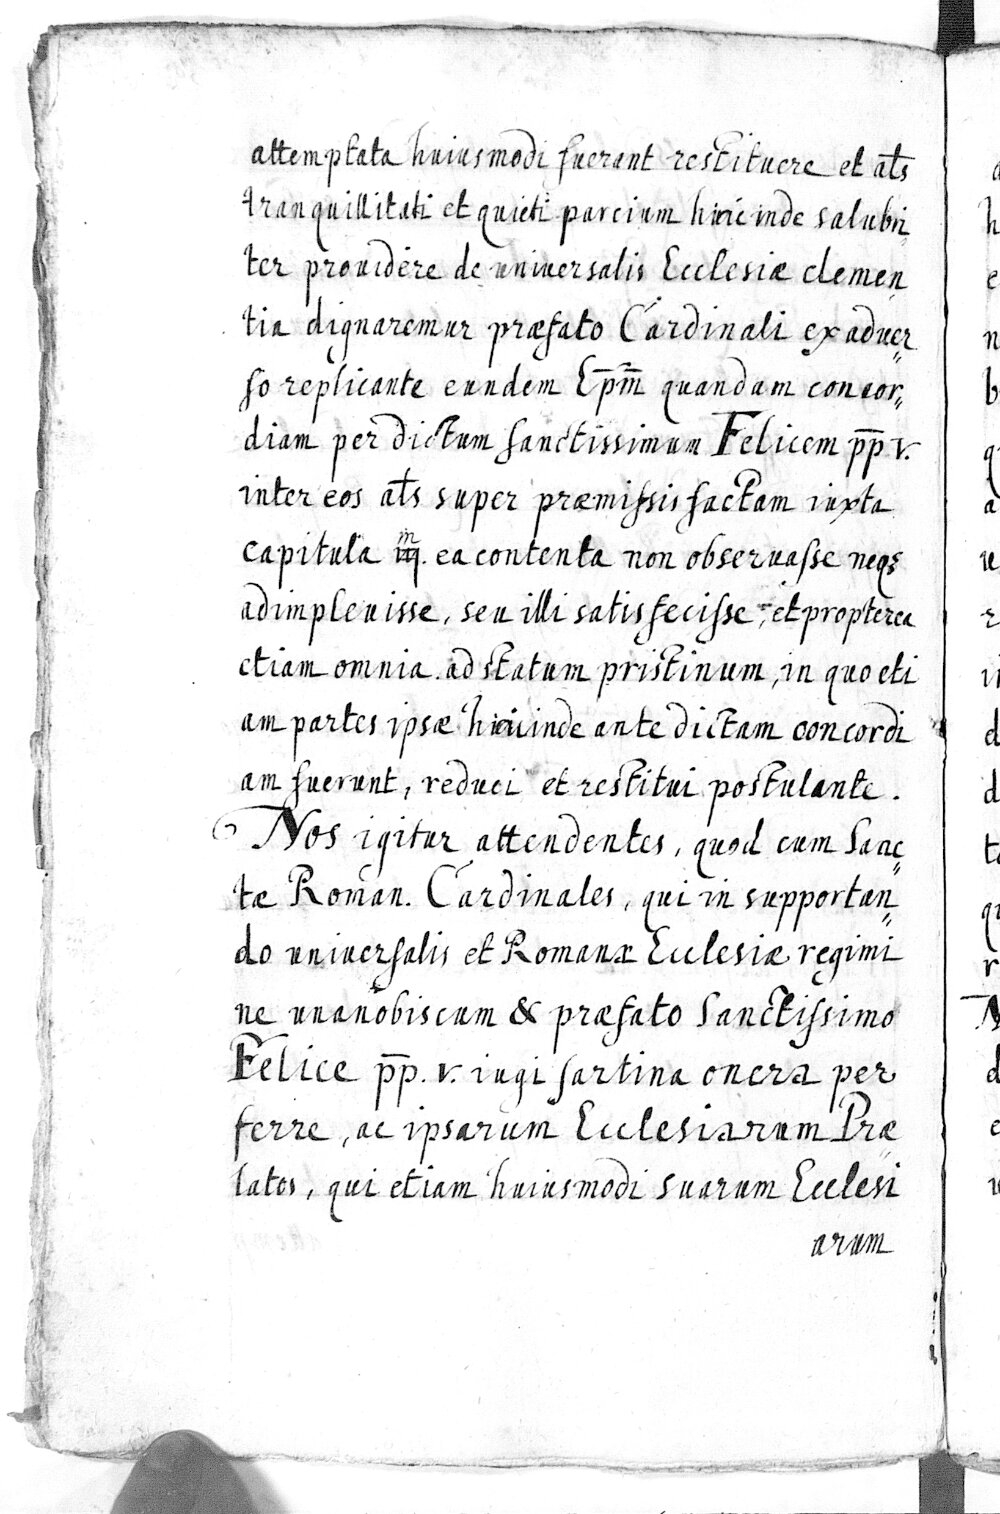 attemptata huiusmodi fuerant restituere et al̃s
tranquillitati et quieti parcium hincinde salubri
ter prouidere de uniuersalis Ecclesiæ clemen
tia dignaremur præfato Cardinali ex aduer„
so replicante eundem Ep̃m̃ quandam concor„
diam per dictum sanctissimum Felicem p̃p̃ V.
inter eos al̃s super præmissis factam iuxta
capitula in ea contenta non obseruasse neqȝ
adimpleuisse, seu illi satisfecisse, et propterea
etiam omnia ad statum pristinum, in quo eti
am partes ipsæ hincinde ante dictam concordi
am fuerunt, reduci et restitui postulante.
Nos igitur attendentes, quod cum Sanc„
tæ Roman. Cardinales, qui in supportan„
do uniuersalis et Romanæ Ecclesiæ regimi
ne unanobiscum & præfato Sanctissimo
Felice p̃p̃. V. iugi sartina onera per
ferre, ac ipsarum Ecclesiarum Præ
latos, qui etiam huiusmodi suarum Ecclesi
arum